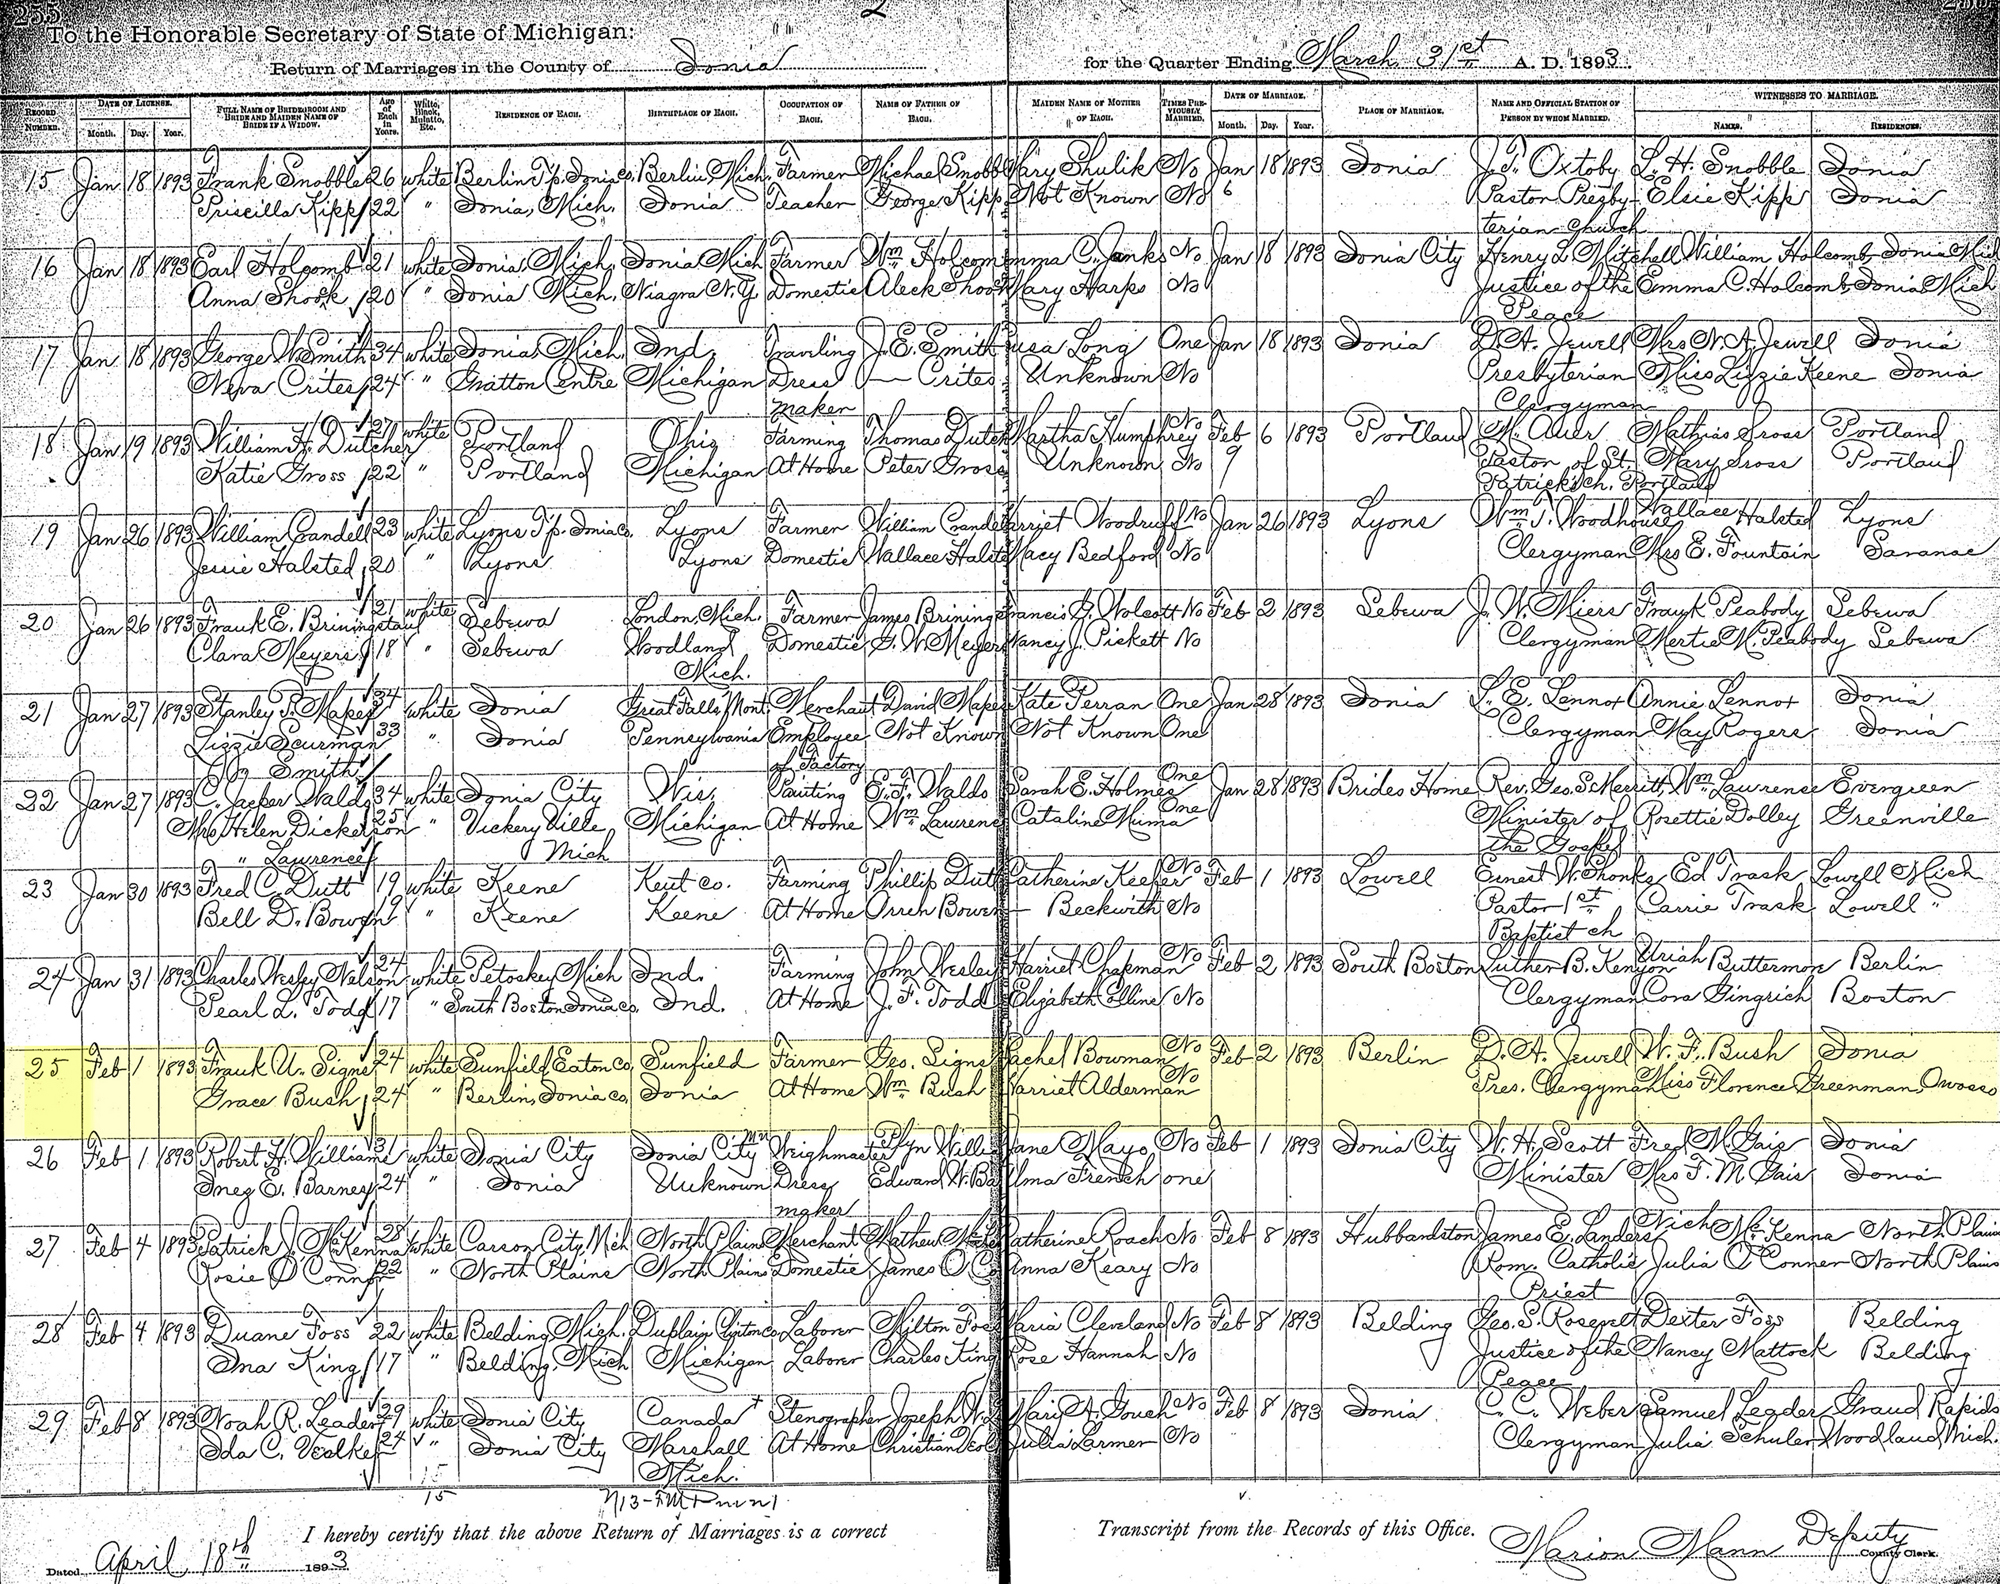 255
2
To the Honorable Secretary of State of Michigan:
Return of Marriages in the County of Ionia for the Quarter Ending March 31st A. D. 1893.
RECORD NUMBER. DATE OF LICENSE. Month. Day. Year. FULL NAME OF BRIDEGROOM AND BRIDE AND MAIDEN NAME OF BRIDE IF A WIDOW. Age of Each in Years. White, Black, Mulatto, Etc. RESIDENCE OF EACH. BIRTHPLACE OF EACH. OCCUPATION OF EACH. NAME OF FATHER OF EACH. MAIDEN NAME OF MOTHER OF EACH. TIMES PREVIOUSLY MARRIED. DATE OF MARRIAGE. Month. Day. Year. PLACE OF MARRIAGE. NAME AND OFFICIAL STATION OF PERSON BY WHOM MARRIED. WITNESSES TO MARRIAGE. NAMES. RESIDENCES.
15 Jan 18 1893 Frank Snobble 26 white Berlin Tp. Ionia Co. Berlin, Mich. Farmer Michael Snobb Mary Shulik No Jan 18 1893 Ionia J. F. Oxtoby L. H. Snobble Ionia
Priscilla Kipp 22 " Ionia, Mich. Ionia Teacher George Kipp Not Known No 6 Pastor Presby- Elsie Kipp Ionia
terian Church
16 Jan 18 1893 Earl Holcomb 21 white Ionia, Mich. Ionia Mich Farmer Wm Holcom Emma C. Janks No Jan 18 1893 Ionia City Henry L. Mitchell William Holcomb Ionia Mich
Anna Shook 20 " Ionia Mich. Niagra N.Y. Domestic Aleck Shoo Mary Harps No Justice of the Emma C. Holcomb Ionia Mich
Peace
17 Jan 18 1893 George W. Smith 34 white Ionia, Mich. Ind. Traveling J. E. Smith Long One Jan 18 1893 Ionia D. A. Jewell Mrs N. A. Jewell Ionia
Neva Crites 24 " Gratton Centre Michigan Dress — Crites Unknown No Presbyterian Miss Lizzie Keene Ionia
maker Clergyman
18 Jan 19 1893 William H. Dutcher 27 white Portland Ohio Farming Thomas Dutch Martha Humphrey No Feb 6 1893 Portland M. Auer Mathias Gross Portland
Katie Gross 22 " Portland Michigan At Home Peter Gross Unknown No 9 Pastor of St. Mary Gross Portland
Patricks ch. Portland
19 Jan 26 1893 William Crandell 23 white Lyons Tp. Ionia Co. Lyons Farmer William Crandel Harriet Woodruff No Jan 26 1893 Lyons Wm. T. Woodhouse Wallace Halsted Lyons
Jessie Halsted 20 " Lyons Lyons Domestic Wallace Halste Macy Bedford No Clergyman Mrs E. Fountain Saranac
20 Jan 26 1893 Frank E. Briningstaul 21 white Sebewa London, Mich. Farmer James Brining Francis G. Wolcott No Feb 2 1893 Sebewa J. W. Miers Frank Peabody Sebewa
Clara Meyers 18 " Sebewa Woodland Domestic G. W. Meyers Nancy J. Pickett No Clergyman Mertie M. Peabody Sebewa
Mich.
21 Jan 27 1893 Stanley T. Mapes 34 white Ionia Great Falls, Mont. Merchant David Mape Kate Perran One Jan 28 1893 Ionia L. E. Lennox Annie Lennox Ionia
Lizzie Scurman 33 " Ionia Pennsylvania Employee Not Known Not Known One Clergyman May Rogers Ionia
Smith of Factory
22 Jan 27 1893 C. Jasper Waldo 34 white Ionia City Wis. Painting E. F. Waldo Sarah E. Holmes One Jan 28 1893 Brides Home Rev. Geo. S. Merritt, Wm. Lawrence Evergreen
Mrs Helen Dickerson 25 " Vickeryville Michigan At Home Wm. Lawrenc Cataline Muma One Minister of Rosettie Dolley Greenville
" Lawrence Mich the Gospel
23 Jan 30 1893 Fred C. Dutt 19 white Keene Kent co. Farming Phillip Dutt Catherine Keefer No Feb 1 1893 Lowell Ernest W. Shonks Ed Trask Lowell Mich
Bell D. Bowen 19 " Keene Keene At Home Orren Bowen — Beckwith No Pastor 1st Carrie Trask Lowell "
Baptist ch
24 Jan 31 1893 Charles Wesley Nelson 24 white Petoskey Mich Ind. Farming John Wesley Harriet Chapman No Feb 2 1893 South Boston Luther B. Kenyon Uriah Buttermore Berlin
Pearl L. Todd 17 " South Boston Ionia co. Ind. At Home J. F. Todd Elizabeth Elline No Clergyman Cora Gingrich Boston
25 Feb 1 1893 Frank U. Signs 24 white Sunfield, Eaton Co. Sunfield Farmer Geo. Signs Rachel Bowman No Feb 2 1893 Berlin D. A. Jewell W. F. Bush Ionia
Grace Bush 24 " Berlin, Ionia co. Ionia At Home Wm Bush Harriet Alderman No Pres. Clergyman Miss Florence Greenman, Owosso
26 Feb 1 1893 Robert H. Williams 31 white Ionia City Ionia City Weighmaster Willi Jane Mayo No Feb 1 1893 Ionia City W. H. Scott Fred M. Gais Ionia
Inez E. Barney 24 " Ionia Unknown Dress Edward W. Ba Alma French one Minister Mrs F. M. Gais Ionia
maker
27 Feb 4 1893 Patrick J. McKenna 28 white Carson City, Mich North Plains Merchant Mathew McKe Catherine Roach No Feb 8 1893 Hubbardston James E. Landers Nich McKenna North Plains
Rosie O'Connor 22 " North Plains North Plains Domestic James O'Co Anna Keary No Rom. Catholic Julia O'Conner North Plains
Priest
28 Feb 4 1893 Duane Foss 22 white Belding, Mich. Duplain, Clinton co. Laborer Milton Fos Maria Cleveland No Feb 8 1893 Belding Geo. S. Dexter Foss Belding
Ina King 17 " Belding, Mich Michigan Laborer Charles King Rose Hannah No Justice of the Nancy Mattock Belding
Peace
29 Feb 8 1893 Noah R. Leader 29 white Ionia City Canada Stenographer Joseph W. L Mary A. Gouch No Feb 8 1893 Ionia C. C. Weber Samuel Leader Grand Rapids
Ida C. Veolker 24 " Ionia City Marshall At Home Christian Veol Julia Larmer No Clergyman Julia Schuler Woodland, Mich.
Mich.
15
15
I hereby certify that the above Return of Marriages is a correct Transcript from the Records of this Office.
Dated April 18th 1893 Marion Mann Deputy County Clerk.